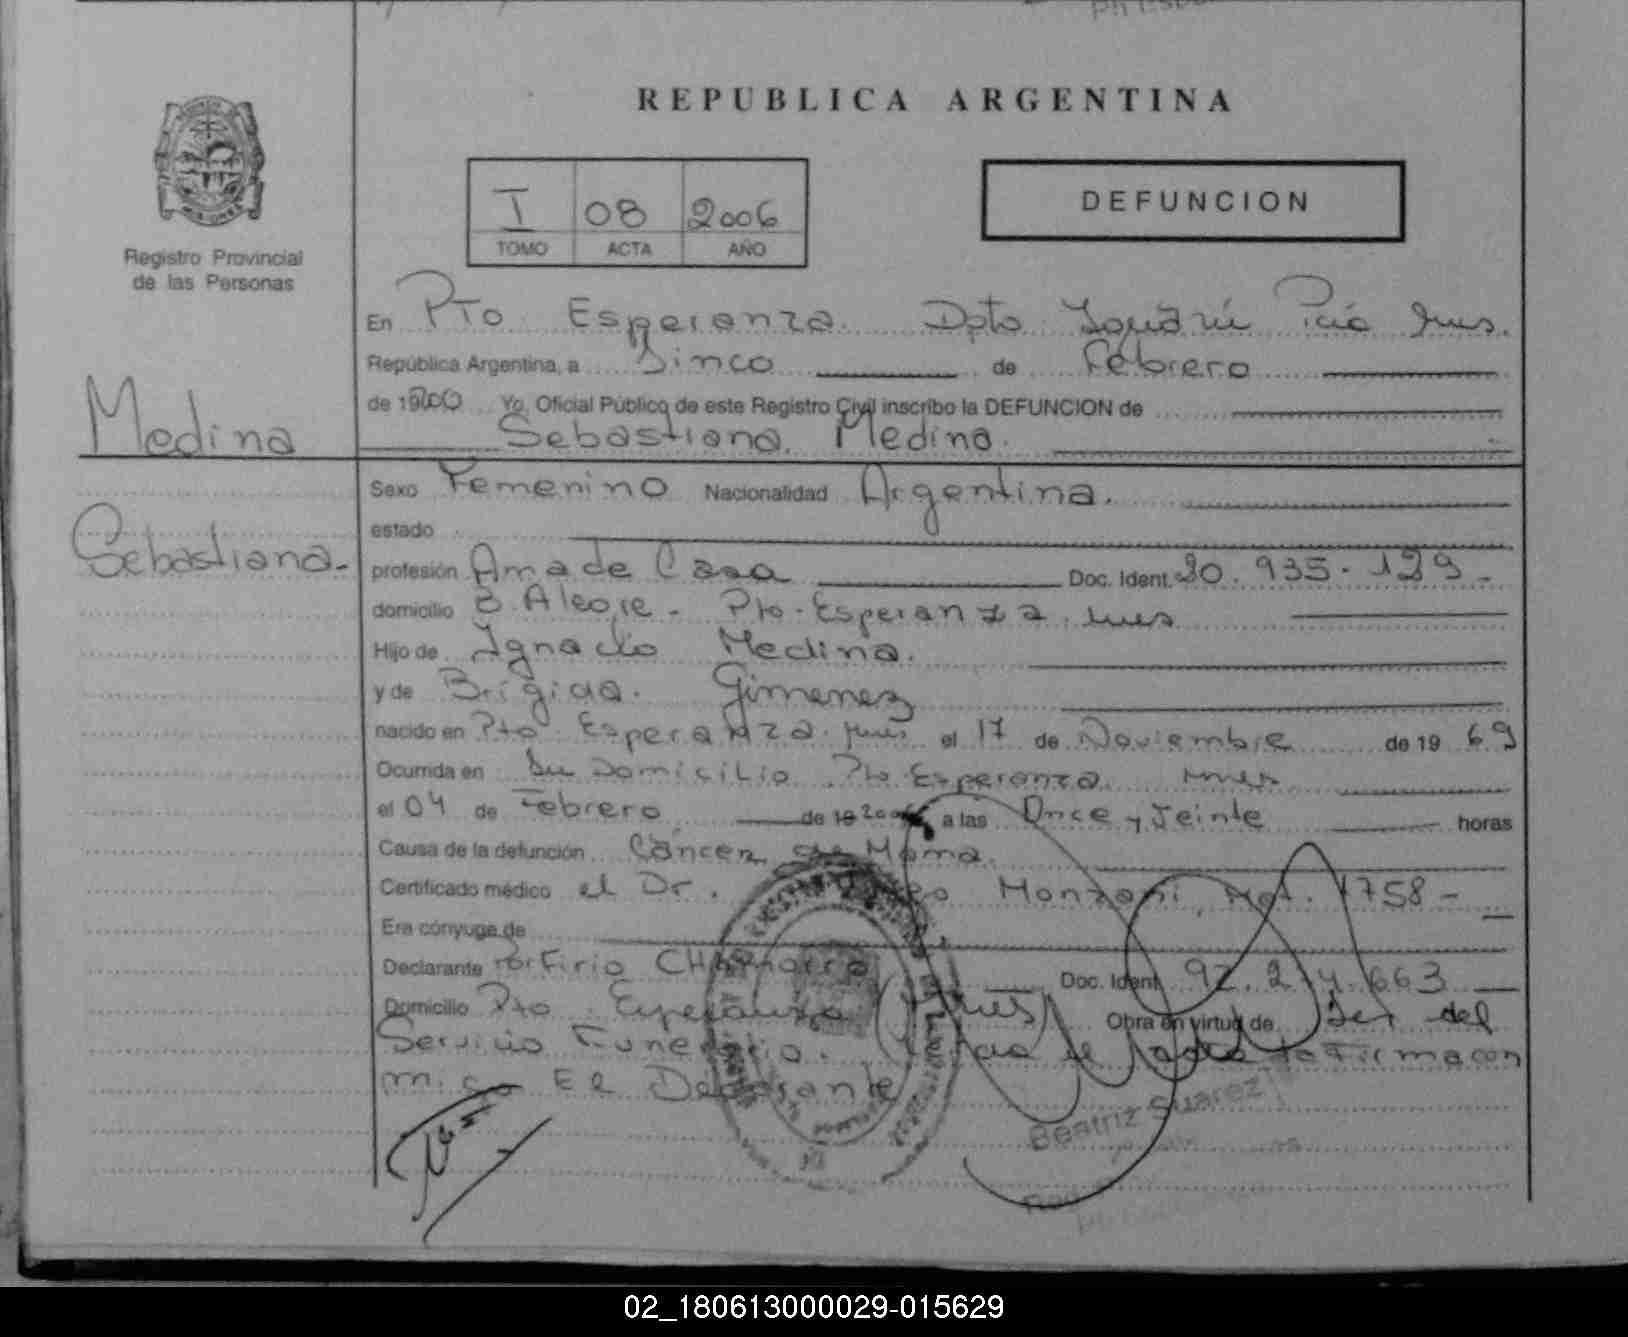 REPUBLICA ARGENTINA
I 08 2006
TOMO ACTA AÑO
DEFUNCION
Registro Provincial
de las Personas
En Pto Esperanza Dpto Iguazú Pcia Mnes.
República Argentina, a Sinco de Febrero
de 19200 Yo, Oficial Público de este Registro Civil inscribo la DEFUNCION de
Sebastiana Medina.
Medina
Sebastiana.-
Sexo Femenino Nacionalidad Argentina.
estado
profesión Ama de Casa Doc. Ident. 20.935.129-
domicilio B. Alegre - Pto. Esperanza, Mnes
Hijo de Ignacio Medina.
y de Brigida. Gimenez
nacido en Pto Esperanza. Mnes el 17 de Noviembre de 19 69
Ocurrida en Su Domicilio Pto Esperanza Mnes
el 04 de Febrero de 19 2006 a las Once y Veinte horas
Causa de la defunción Cáncer de Mama.
Certificado médico el Dr. Monzoni, Mat. 1758-
Era cónyuge de
Declarante Porfirio Doc. Ident. 92.214.663
Domicilio Pto Esperanza (Mnes) Obra en virtud de Ser del
Servicio Funerario. la Firma con
m.go El Declarante
Beatriz Suarez
02_180613000029-015629